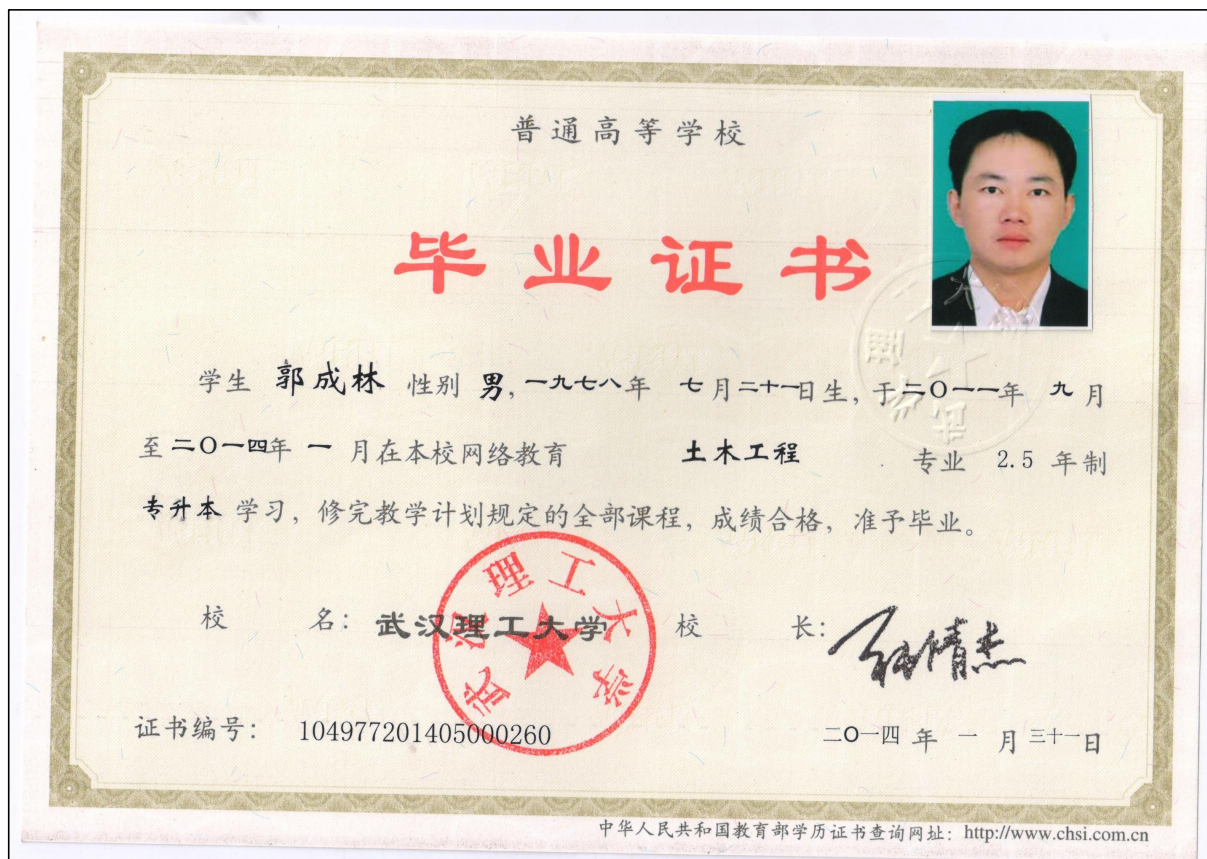 普通高等学校
毕业证书
学生 郭成林 性别 男, 一九七八年 七月二十一日生, 于二〇一一年 九月
至二〇一四年 一 月在本校网络教育 土木工程 专业 2.5 年制
专升本 学习, 修完教学计划规定的全部课程, 成绩合格, 准予毕业。
校 名: 武汉理工大学 校 长:
武汉理工大学
证书编号: 104977201405000260 二〇一四 年 一 月 三十一日
中华人民共和国教育部学历证书查询网址: http://www.chsi.com.cn